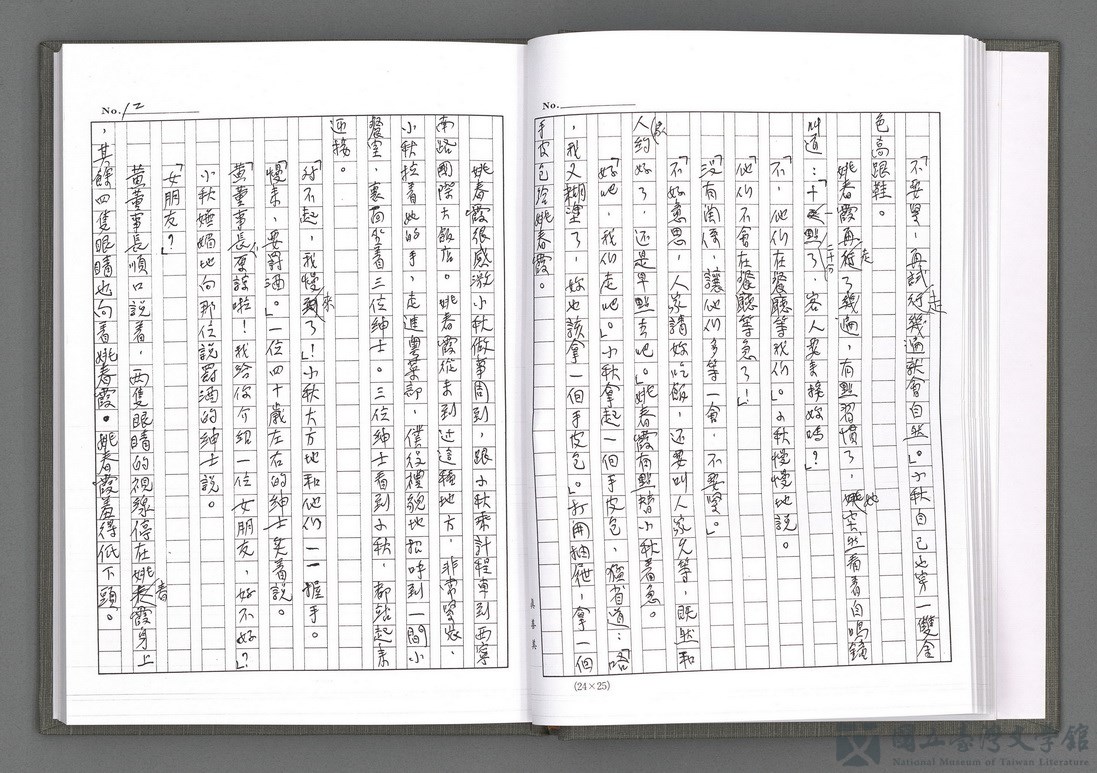 No.
「不要緊，再試走幾遍就會自然。」小秋自己也穿一雙金
色高跟鞋。
姚春霞再走了幾遍，有點習慣了，她突然看看自鳴鐘
叫道：「十一點二十分了，客人要來接妳嗎？」
「不，他们在餐聽等我们。」小秋慢慢地說。
「他们不會在餐聽等急了！」
「沒有関係，讓他们多等一會，不要緊。」
「不好意思，人家請妳吃飯，还要叫人家久等，既然和
人家約好了，还是早點去吧。」姚春霞有點替小秋着急。
「好吧，我们走吧。」小秋拿起一個手皮包，猛省道：「咯
，我又糊塗了，妳也該拿一個手皮包。」打開抽屜，拿一個
手皮包给姚春霞。
(24×25)
No. 12
姚春霞很感激小秋做事周到，跟小秋乘計程車到西寧
南路國際大飯店。姚春霞從未到过這種地方，非常緊張，
小秋拉着她的手，走進粵菜部，僕役禮貌地招呼到一間小
餐室，裏面坐着三位紳士。三位紳士看到小秋，都站起來
迎接。
「对不起，我慢來了！」小秋大方地和他们一一握手。
「慢來，要罸酒。」一位四十歲左右的紳士笑着說。
「黄董事長，不要該啦！我给你介紹一位女朋友，好不好？」
小秋嫵媚地向那位說罸酒的紳士說。
「女朋友？」
黄董事長順口說着，两隻眼睛的視線停在姚春霞身上
，其餘四隻眼睛也向着姚春霞。姚春霞羞得低下頭。
國立臺灣文學館
National Museum of Taiwan Literature